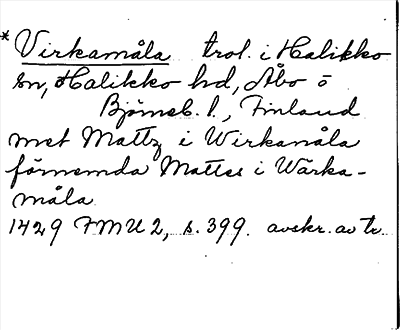 * Virkamåla trol. i Halikko
sn, Halikko hd, Åbo o
Björneb. l., Finland
met Mattz i Wirkamåla
förnemda Mattes i Wärka-
måla
1429 FMU 2, s. 399. avskr. av tr.